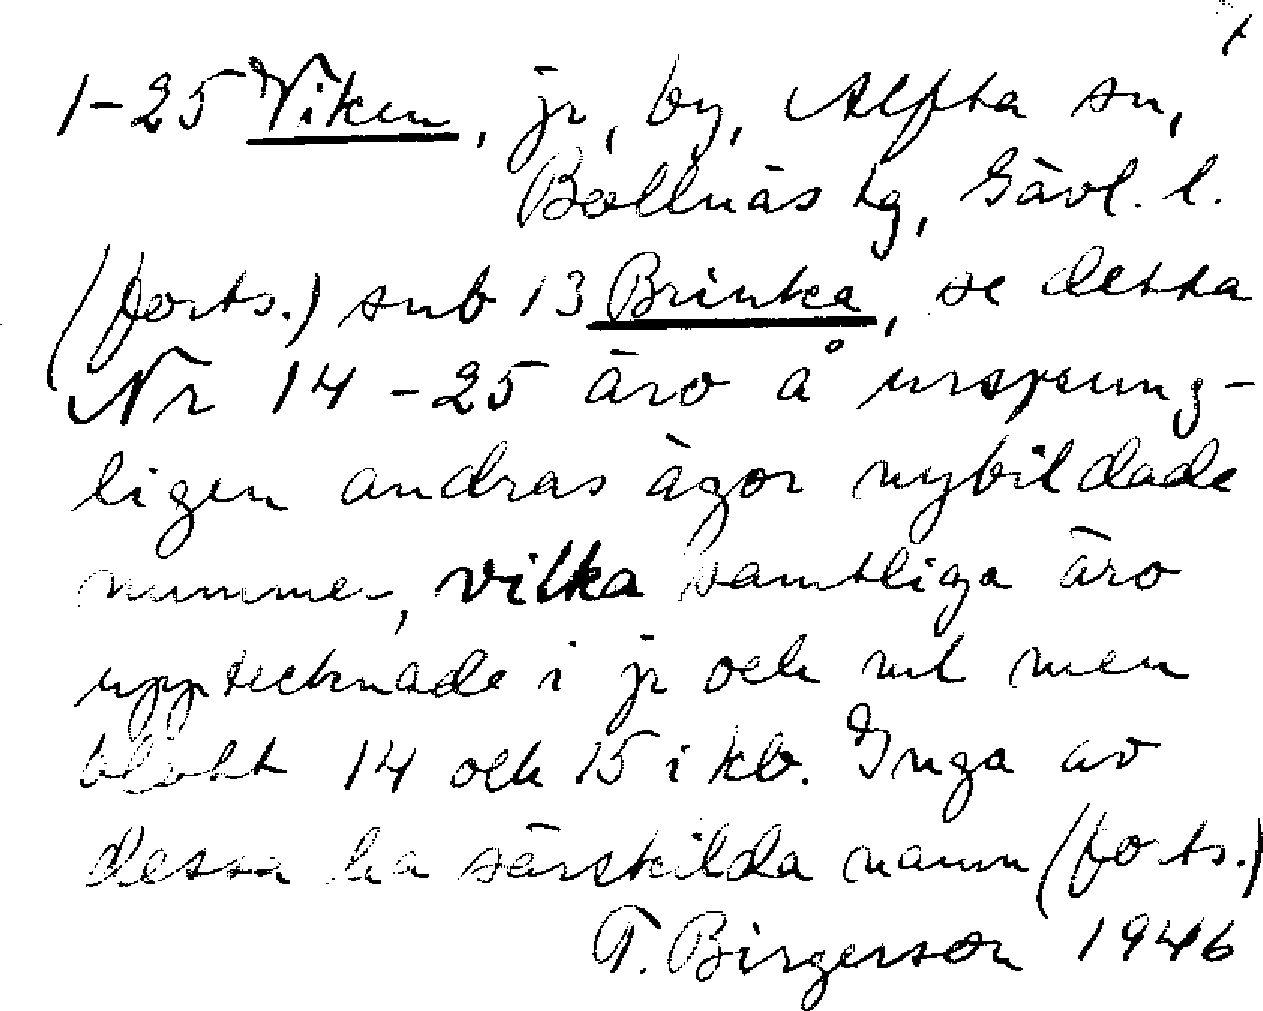 1-25 Viken, jr, by, Alfta sn,
Bollnäs tg, Gävl. l.
(forts.) sub 13 Brinka, se detta
Nr 14-25 äro å ursprung-
ligen andras ägor nybildade
nummer, vilka samtliga äro
upptecknade i jr och ml men
blott 14 och 15 i kb. Inga av
dessa ha särskilda namn (forts.)
T. Birgerson 1946